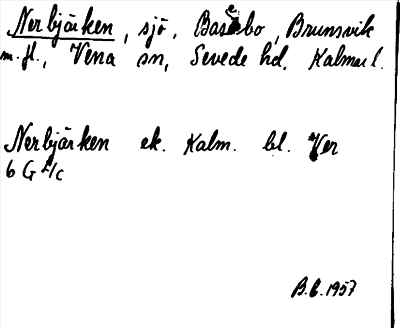 Nerbjärken, sjö, Basebo, Brunsvik
m.fl., Vena sn, Sevede hd, Kalmar l.
Nerbjärken ek. Kalm. bl. Ver
6 G f/c
B.b.1957